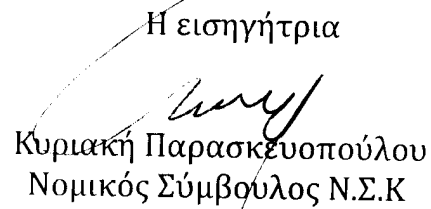 Η εισηγήτρια
Κυριακή Παρασκευοπούλου
Νομικός Σύμβουλος Ν.Σ.Κ